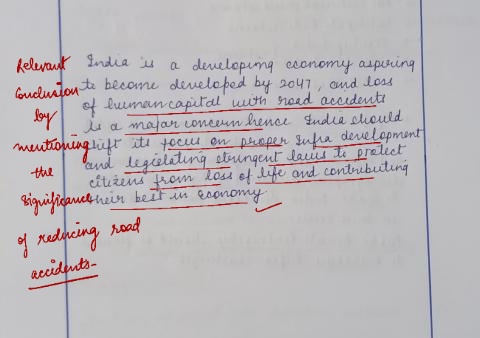 Relevant
Conclusion
by
mentioning
the
Significance
of reducing road
accidents-
India is a developing economy aspiring
to become developed by 2047, and loss
of human capital with road accidents
is a major concern hence India should
shift its focus on proper Infra development
and legislating stringent laws to protect
citizens from loss of life and contributing
their best in Economy